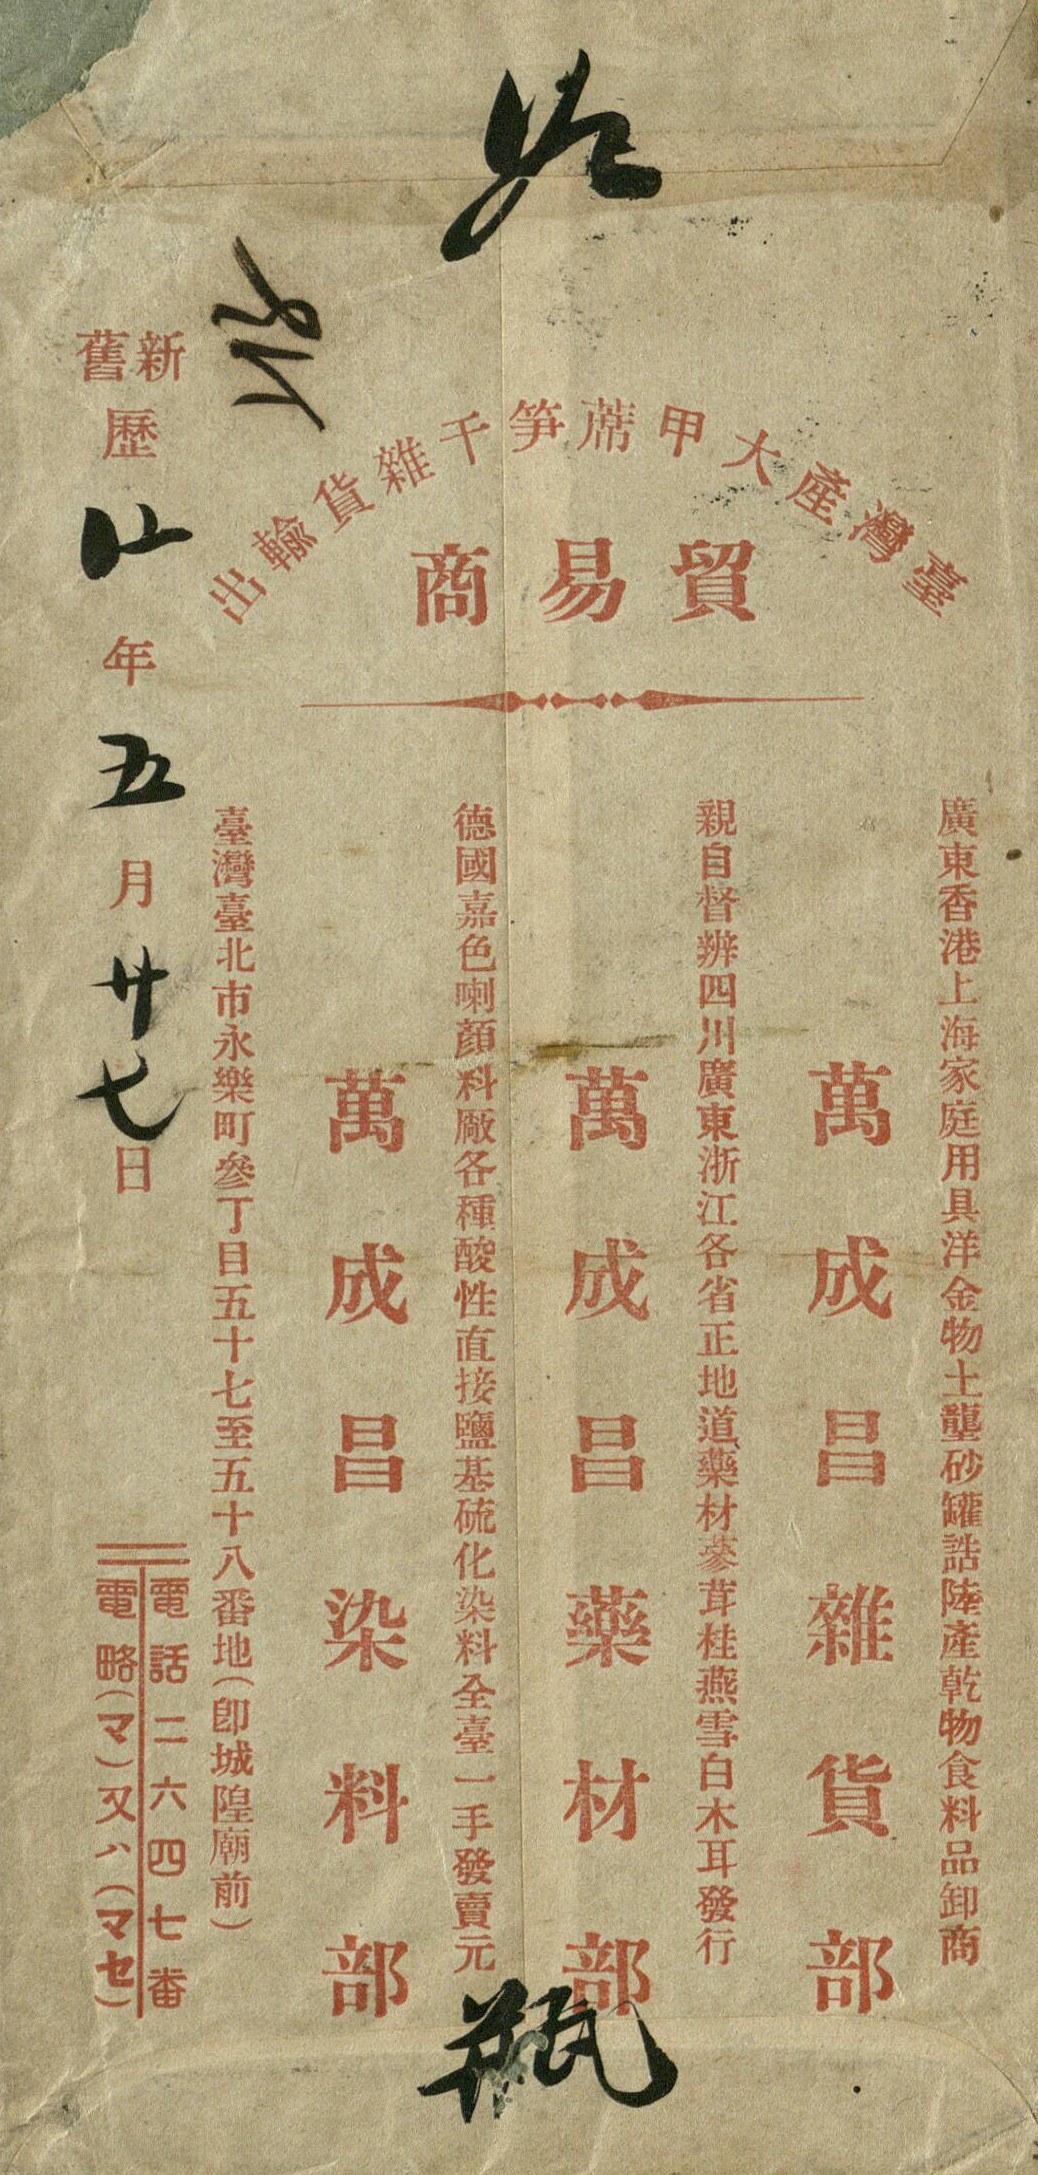 臺灣產大甲蓆笋干雜貨輸出
貿易商
廣東香港上海家庭用具洋金物土壟砂罐誥陸產乾物食料品卸商
萬成昌雜貨部
親自督辦四川廣東浙江各省正地道藥材蔘茸桂燕雪白木耳發行
萬成昌藥材部
德國嘉色喇顏料廠各種酸性直接鹽基硫化染料全臺一手發賣元
萬成昌染料部
臺灣臺北市永樂町參丁目五十七至五十八番地(卽城隍廟前)
電話二六四七番
電略(マ)又ハ(マセ)
新舊歷 年五月廿七日
瓶